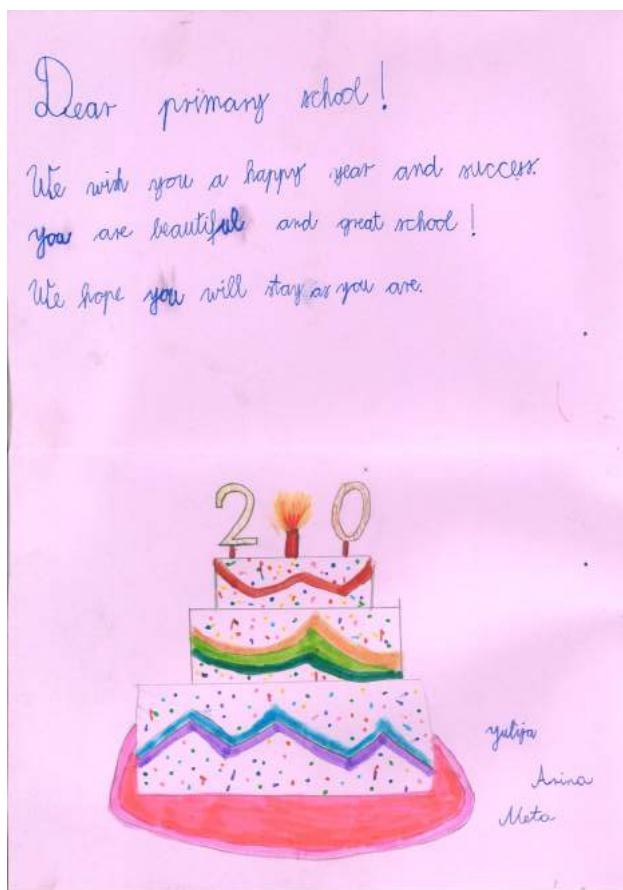 Dear primary school!
We wish you a happy year and success.
you are beautiful and great school!
We hope you will stay as you are.
20
Arina
Meta